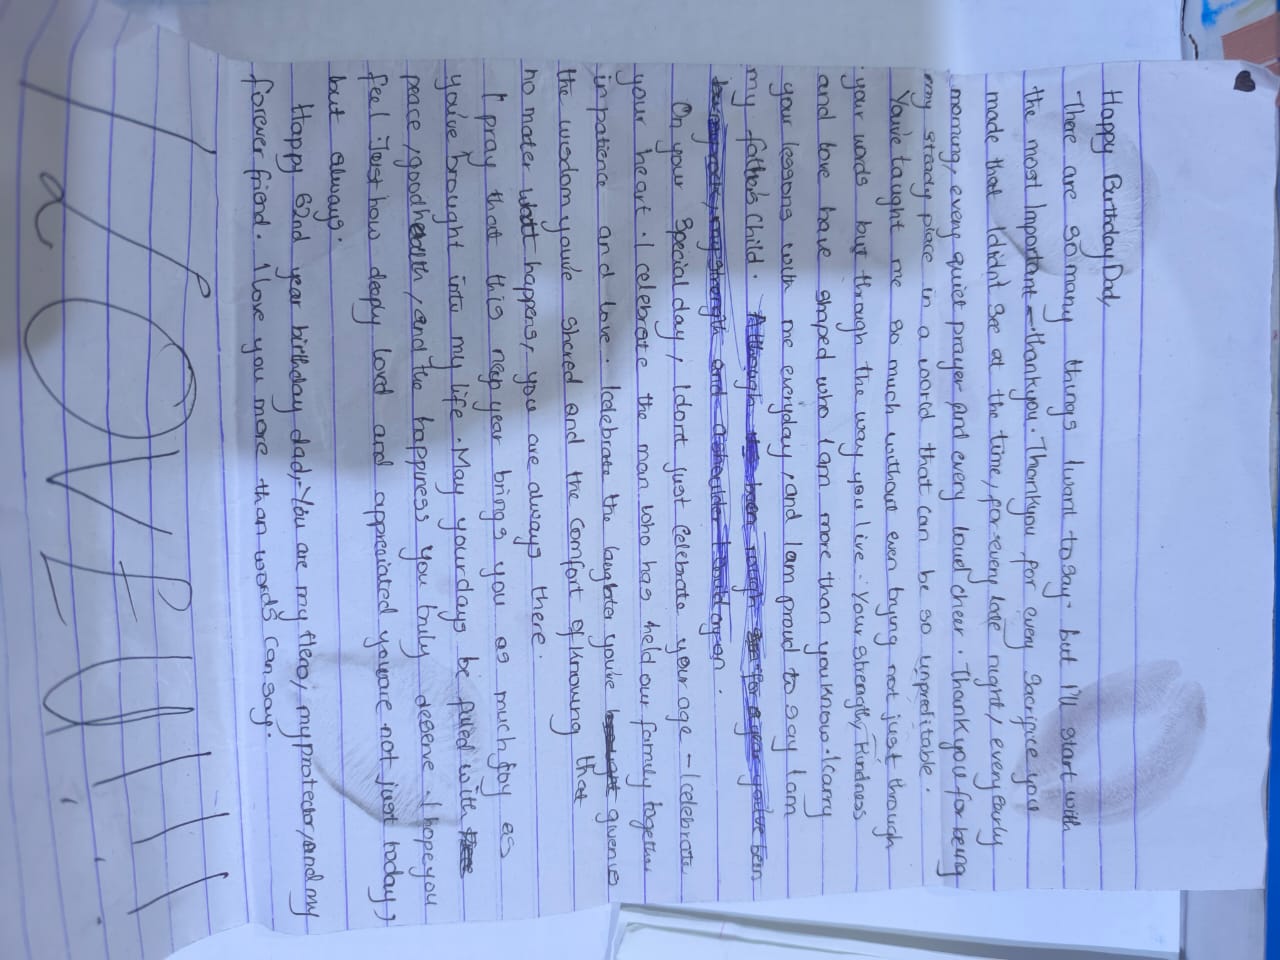 Happy Birthday Dad,
There are so many things I want to say- but I'll start with
the most Important - thankyou. Thankyou for every Sacrifice you
made that I didn't se at the time, for every late night, every early
morning, every quiet prayer and every loud cheer. Thank you for being
my steady place in a world that can be so unpreditable.
You've taught me so much without even trying not just through
your words but through the way you live. Your strength, Kindness
and love have shaped who I am more than you know. I carry
your lessons with me everyday, and I am proud to say I am
my father's child. Although the been rough for a year you've been
my strength and a shoulder to cry on.
On your Special day, I dont just Celebrate your age - I celebrate
your heart. I celebrate the man who has held our family together
in patience and love. I celebrate the laughter you've given us
the wisdom you've shared and the comfort of knowing that
no mater what happens, you are always there.
I pray that this new year brings you as much joy as
you've brought into my life. May your days be filled with
peace, good health, and the happiness you truly deserve. I hope you
feel Just how deeply loved and appreciated you are not just today,
but always.
Happy 62nd year birthday dad, You are my Hero, my protector, and my
forever friend. I love you more than words can say.